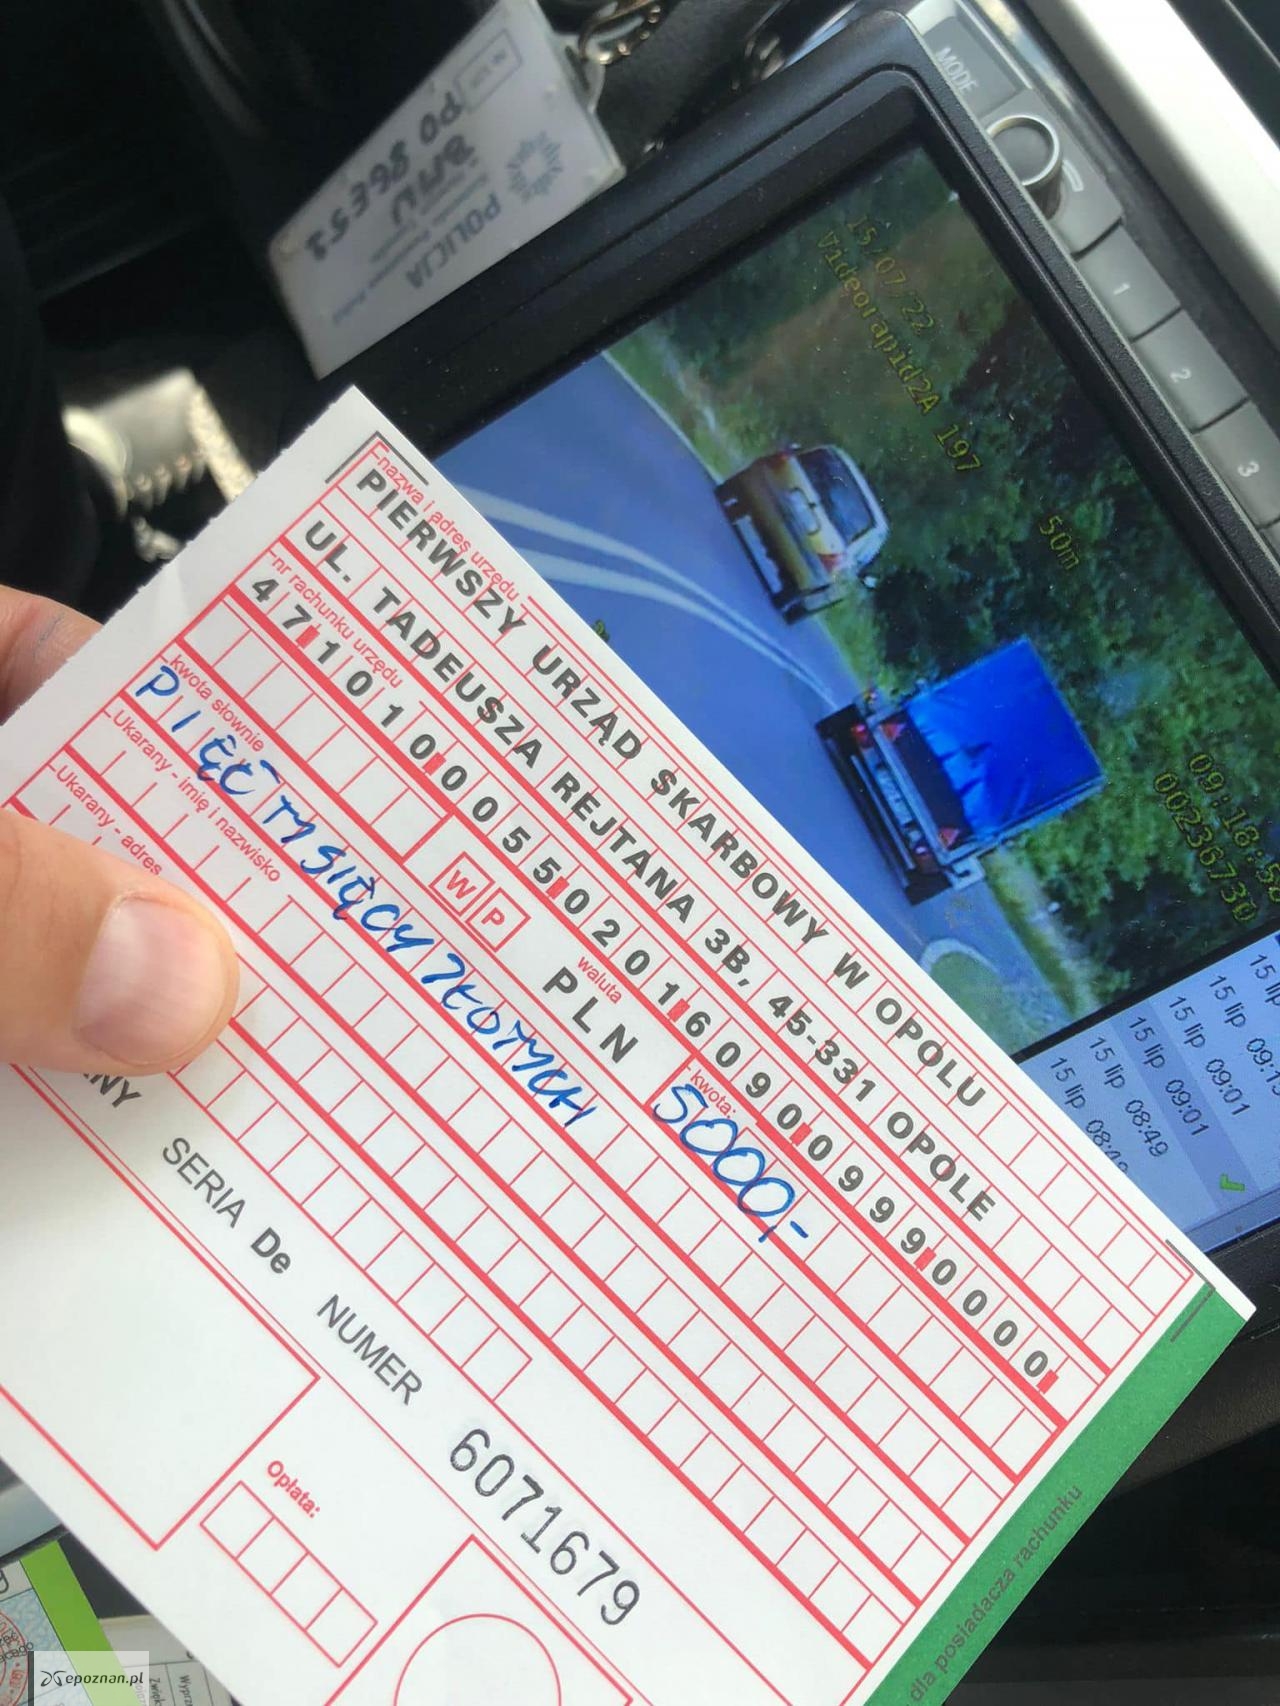 MODE
1
2
3
POLICJA
BMW
PO 86E53
15/07/22
Videorapid2A 197
50m
09:18:5
00236730
15 lip
15 lip 09:1
15 lip 09:01
15 lip 09:01
15 lip 08:49
15 lip 08:49
nazwa i adres urzędu
PIERWSZY URZĄD SKARBOWY W OPOLU
UL. TADEUSZA REJTANA 3B, 45-331 OPOLE
nr rachunku urzędu
47 1010 0055 0201 6090 0999 0000
W P
waluta
PLN
kwota:
5000,-
kwota słownie
PIĘĆ TYSIĘCY ZŁOTYCH
Ukarany - imię i nazwisko
Ukarany - adres
ANY
SERIA De NUMER 6071679
Opłata:
dla posiadacza rachunku
epoznan.pl